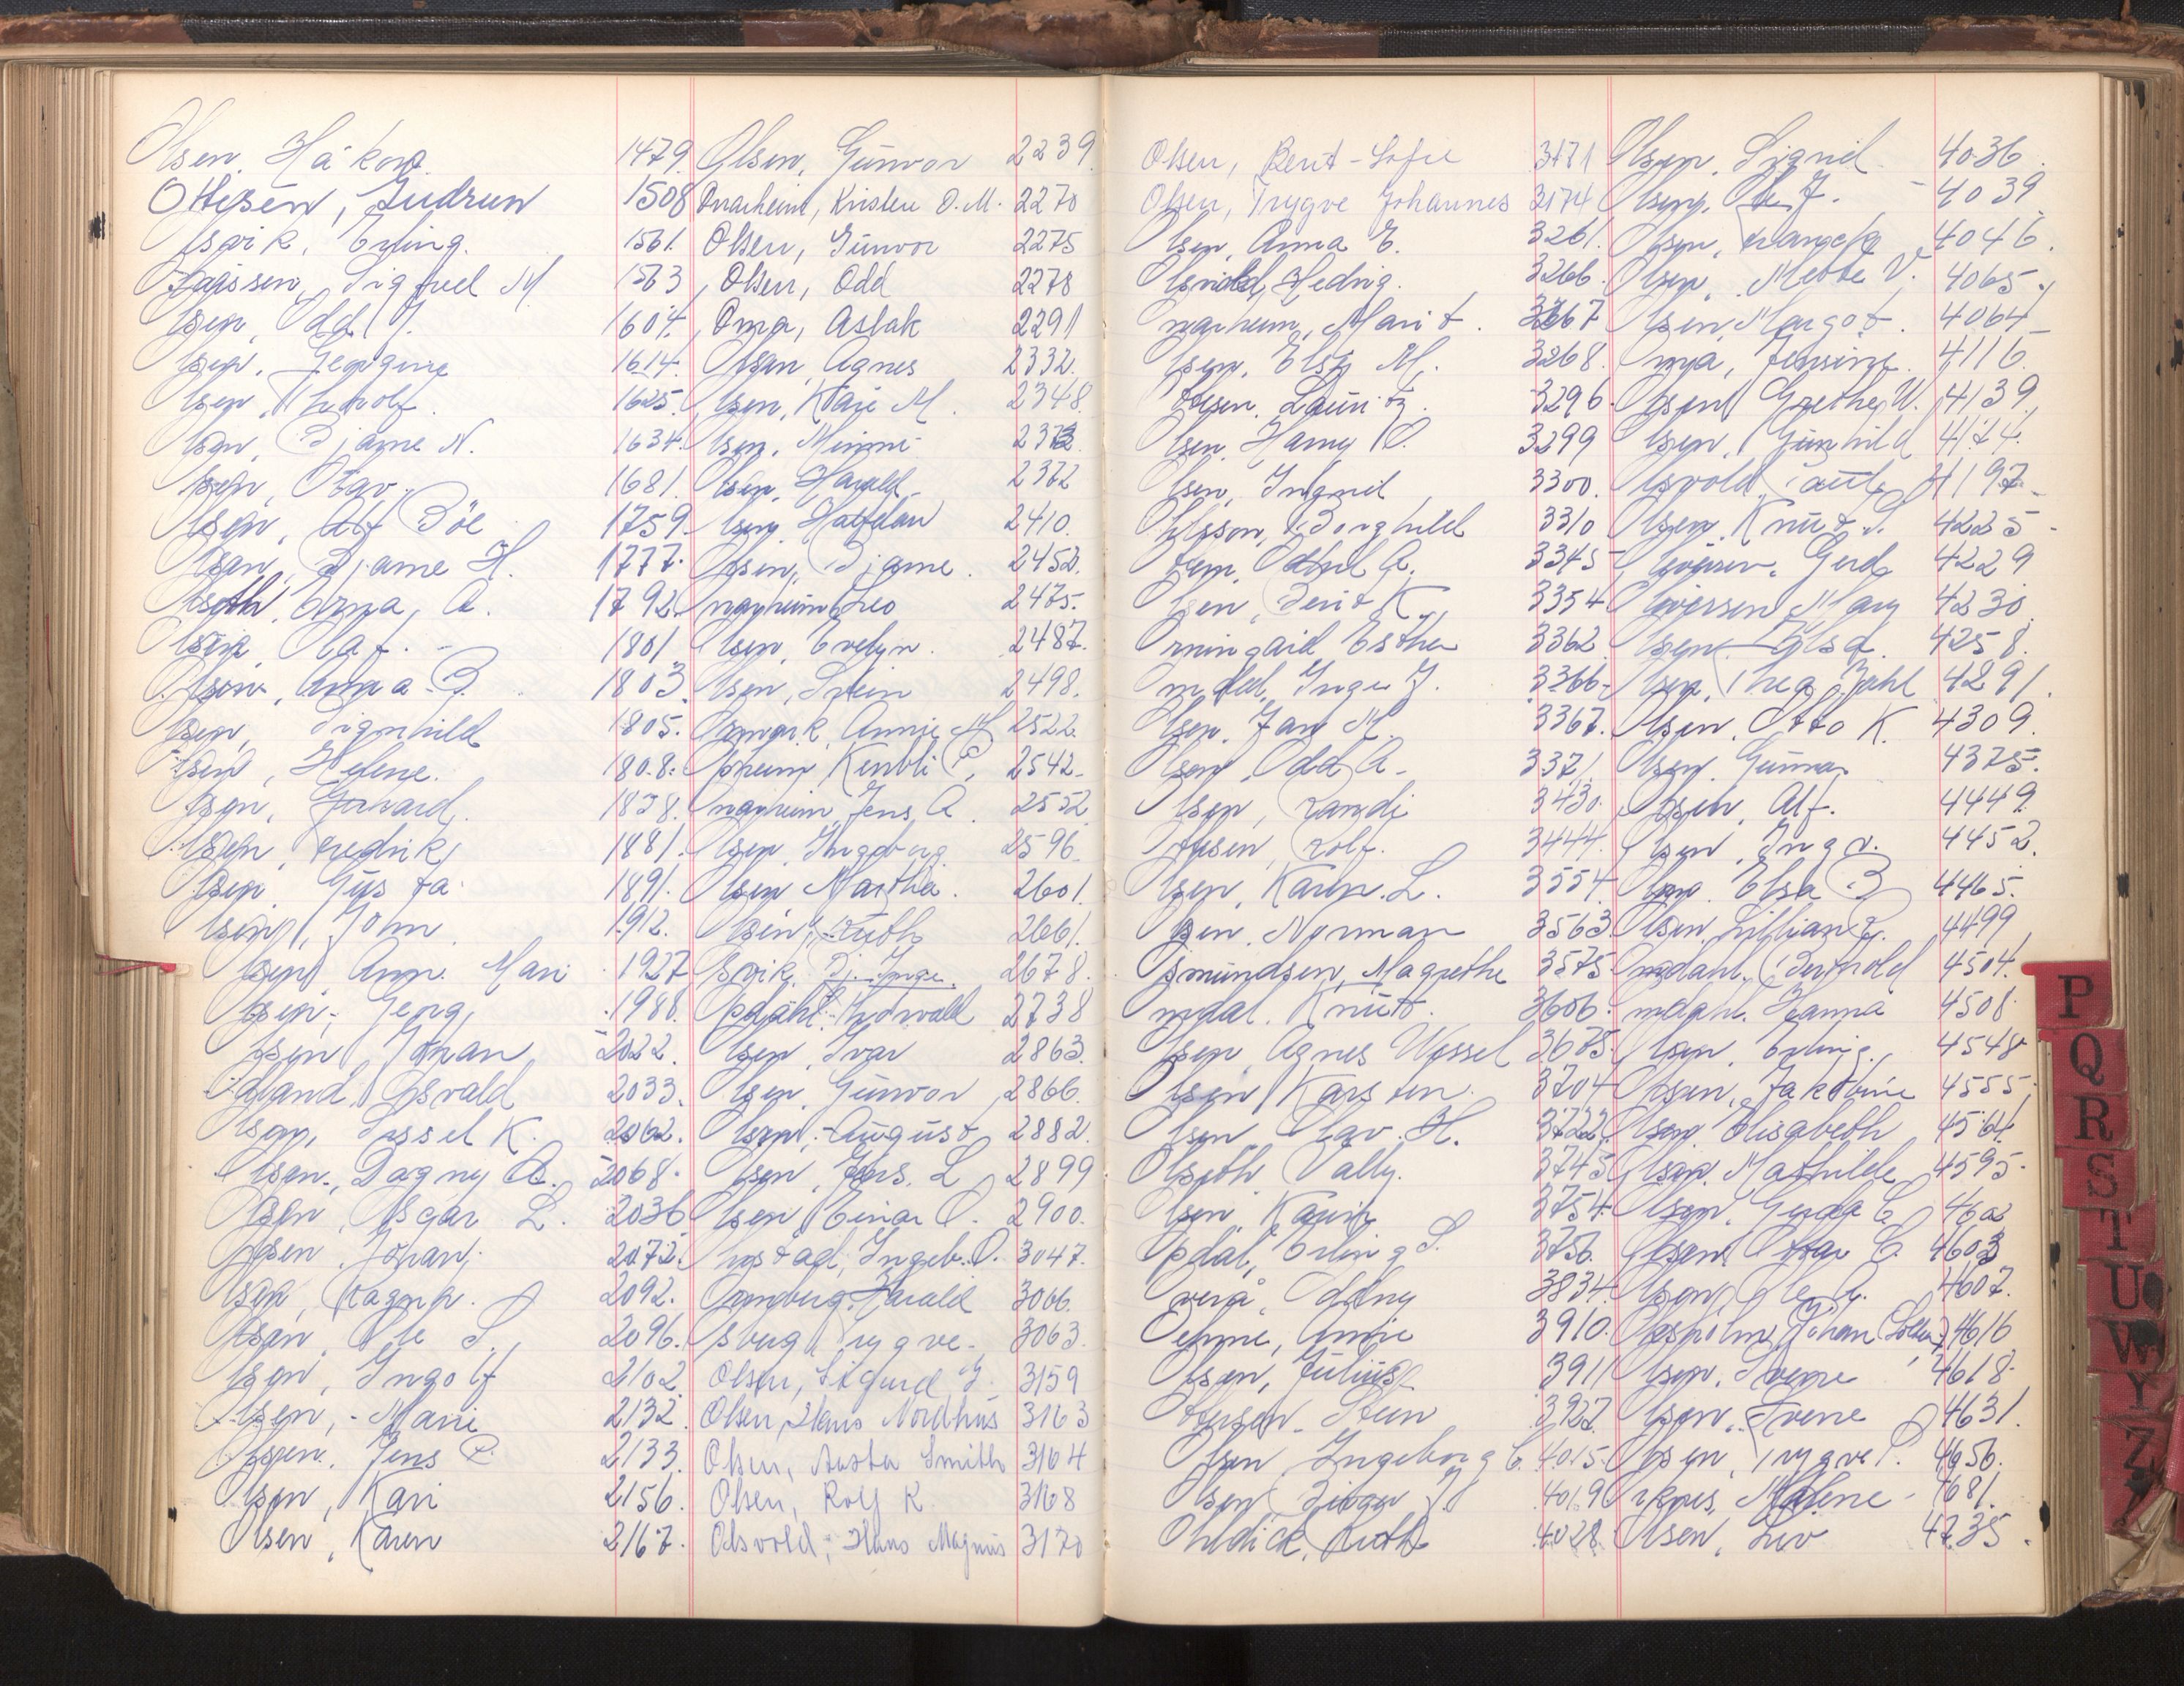 Olsen, Håkon 1479.
Ottesen, Gudrun 1508
Osvik, Erling. 1561.
Sigfred M. 1573
Olsen, Odd J. 1604.
Olsen, Georgine 1614.
Olsen, Thorolf. 1625.
Olsen, Bjarne N. 1634.
Olsen, Olav. 1681.
Olsen, Alf Böe 1759.
Olsen, Bjarne H. 1777.
Olseth, Erna, A. 1792.
Olsen, Olaf. 1801
Olsen, Anna B. 1803
Olsen, Sigrnhild 1805.
Olsen, Helene. 1808.
Olsen, Forvard. 1838.
Olsen, Fredrik 1881.
Olsen, Gusta 1891.
Olsen, John 1912.
Olsen, Ann. Mari 1927
Olsen, Georg 1988.
Olsen, Johan 2022.
Osvald 2033.
Olsen, Sissel K. 2062.
Olsen, Dagny A. 2068.
Olsen, Asgar L. 2036
Olsen, Johan. 2072.
Olsen, Ragna. 2092.
Olsen, Ole S. 2096.
Olsen, Ingolf 2102.
Olsen, Mari 2132.
Olsen, Jens P. 2133.
Olsen, Kari 2156.
Olsen, Karen 2167.
Olsen, Gunvor 2239
Onarheim, Kristen O.M. 2270
Olsen, Gunvor 2275
Olsen, Odd 2278
Oma, Aslak 2291
Olsen, Agnes 2332.
Olsen, Kåre M. 2348.
Olsen, Minni
Olsen, Harald 2372
Olsen, Halfdan 2410.
Olsen, Bjarne. 2452.
Onarheim, Leo 2475.
Olsen, Evelyn. 2487.
Olsen, Svein 2498.
Annie M. 2522.
Opheim, 2542.
Onarheim, Jens A. 2552
Olsen, Ingeborg 2596.
Olsen Martha. 2601.
Olsen, Ruth 2661.
Osvik, Bj. Inge. 2678.
Opdahl, Thorvald 2738
Olsen, Ivar 2863.
Olsen, Gunvor 2866.
Olsen, August 2882.
Olsen, Jens. L 2899
Olsen, Einar O. 2900.
Ingeb. O. 3047.
Harald 3006.
Trygve. 3063.
Olsen, Sigurd J. 3159
Olsen, Hans Nordhus 3163
Olsen, Aasta Smith 3164
Olsen, Rolf K 3168
Olsvold, Hans Magnus 3170
Olsen, Berit-Sofie 3171
Olsen, Trygve Johannes 3174
Olsen, Anna E. 3261.
Olsvold, Hedvig. 3266.
Onarheim, Marit. 3267
Olsen, Elsy M. 3268.
Lauritz. 3296.
Olsen, Harry O. 3299
Olsen, Ingrid 3300.
Olsson, Borghild 3310
A. 3345
Olsen, Berit K. 3354.
Ormingard Esther 3362.
Omdal, Inger J. 3366.
Olsen, Jan M. 3367.
Olsen, Odd A. 3371.
Olsen, Randi 3430.
Ottesen, Rolf. 3444.
Olsen, Karin. L. 3554.
Olsen, Norman 3563
Osmundsen, Magrethe 3575
Omdal, Knut. 3606.
Olsen, Agnes Wessel 3675.
Olsen Karsten. 3704
Olsen Olav. H. 3722.
Olseth Vally. 3745
Olsen, Karin 3754.
Opdal, Erling S. 3756.
Overå, Oddny 3834.
Oehme, Annie 3910.
Olsen, Julius 3911
Ottesen, Stein 3927.
Olsen, Ingeborg C. 4015.
Olsen, Birger J. 4019
Ohldick, Ruth 4028.
Olsen, Sigrid 4036.
Olsen, Ole J. 4039
Olsen, 4046.
Olsen, Mette V. 4065.
Olsen, Margot. 4064
Omja, Jensine. 4116.
Olsen Grethe W. 4139.
Olsen, Gunhild 4174.
Olsvold, 4197.
Olsen, Knut S. 4225
Gerd 4229
Mary 4230.
Olsen, Elsa. 4258.
Olsen, Thea Dahl 4291.
Olsen, Otto K. 4309.
Olsen, Gunnar 4375.
Olsen, Alf. 4449.
Olsen, Inga. 4452.
Olsen, Elsa B 4465.
Olsen, Lillian 4499
Omdahl, Bernhold 4504.
Omdahl, Hanna 4508
Olsen, Erling. 4548
Olsen, Jakobine 4555.
Olsen, Elisabeth 4564
Olsen, Mathilde 4595.
Olsen, Gerda C. 4602
Olsen, C. 4603
Olsen, Ole A. 4607.
Johan 4616
Olsen, Sverre 4618.
Olsen, Svene 4631.
Olsen, Trygve P. 4656.
Malene 4681.
Olsen, Liv 4735.
P
Q
R
S
T
U
W
Y
Z